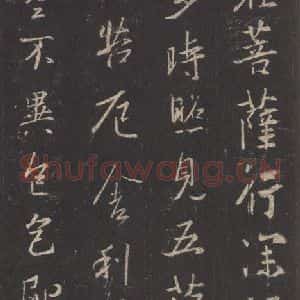 在菩薩行深
多時照見五蘊
苦厄舍利
空不異色色即
Shufawang.CN